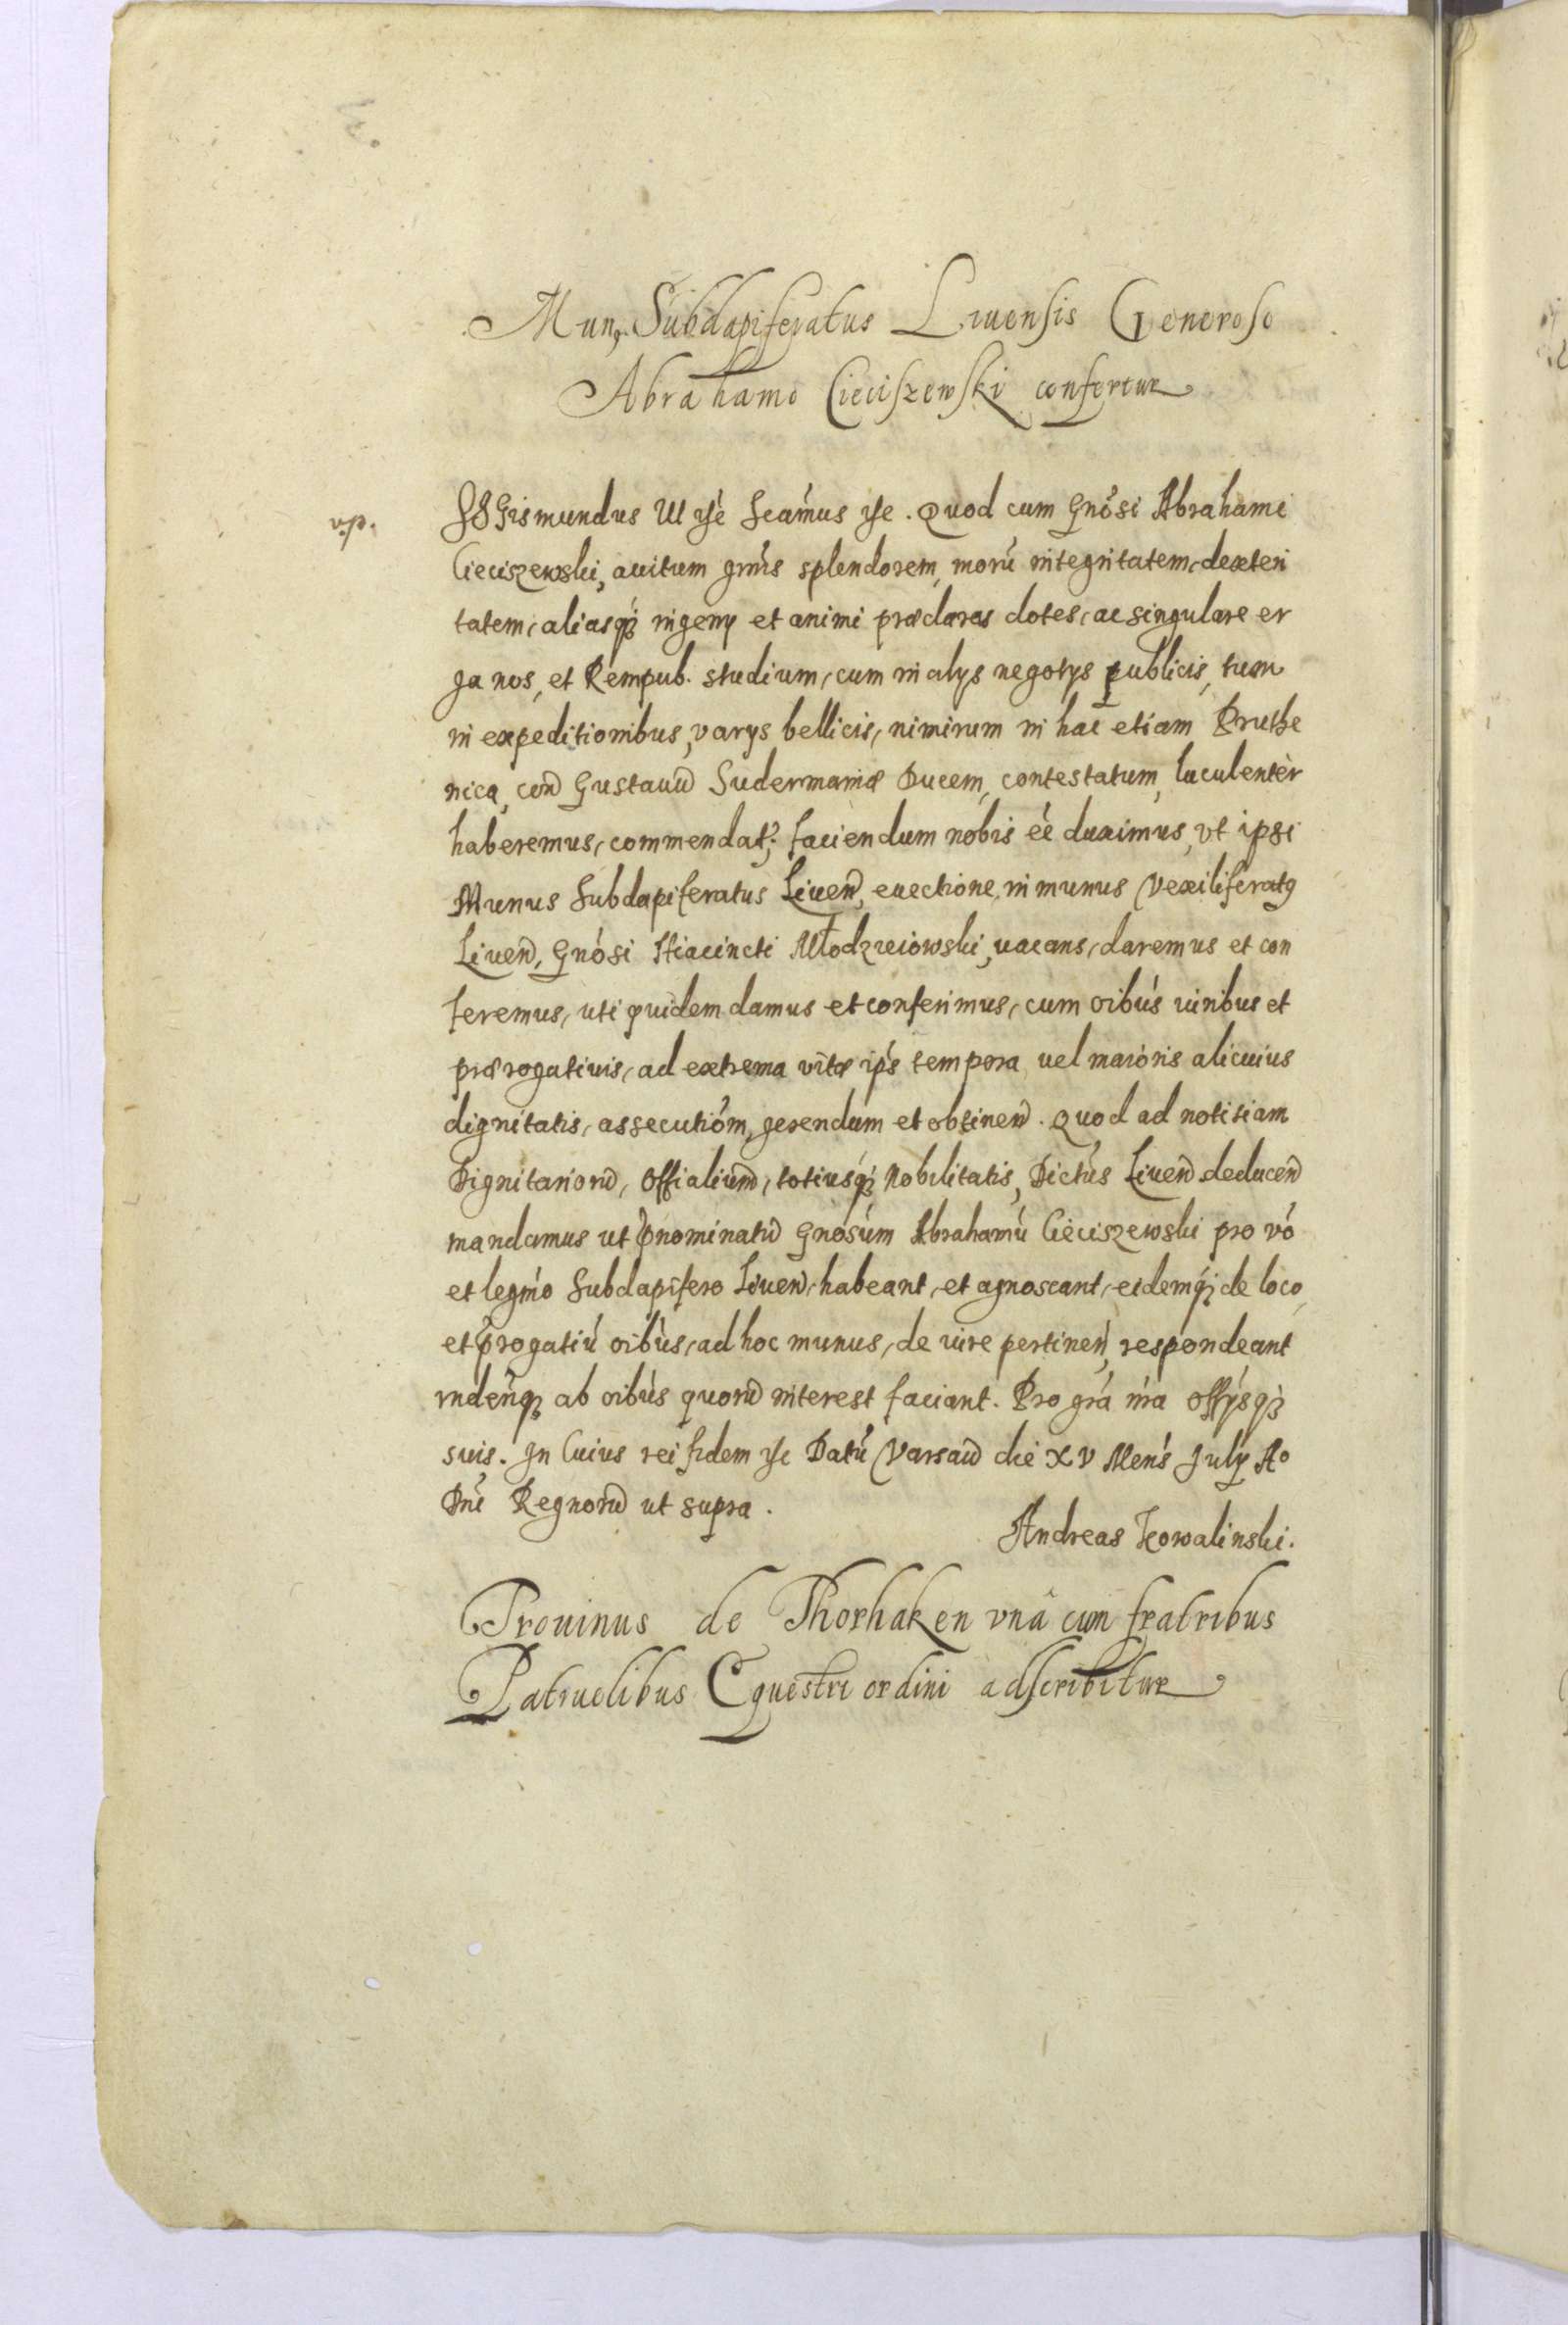 Mun9 Subdapiferatus Liuensis Generoso
Abrahamo Cieciszewski confertur
Sigismundus III etc. Scamus etc. Quod cum Gnosi Abrahami
Cieciszewski, auitum gnris splendorem, morũ integritatem, dexteri
tatem, aliasq3 ingenij et animi præclaras dotes, ac singulare er
ga nos, et Rempub. studium, cum in alijs negotijs publicis, tum
in expeditionibus, varijs bellicis, nimirum in hac etiam Pruthe
nica, con Gustauũ Sudermaniæ Ducem, contestatum, luculentèr
haberemus, commendat; faciendum nobis eé duximus, vt ipsi
Munus Subdapiferatus Liuen, euectione, in munus Vexiliferat9
Liuen, Gnósi Hiacincti Młodzieiowski, uacans, daremus et con
feremus, uti quidem damus et conferimus, cum oibus iuribus et
prærogatiuis, ad extrema vitæ ips tempora uel maioris alicuius
dignitatis, assecutiom, gerendum et obtinen. Quod ad notitiam
Dignitarioru, Officialium, totiusq3 Nobilitatis, Dictus Liuen deducen
mandamus ut pnominatu Gnosum Abrahamũ Cieciszewski pro vo
et legmo Subdapifero Liuen, habeant, et agnoscant, eidemq3 de loco,
et progatiu oibus, ad hoc munus, de iure pertinen, respondeant
rndenq3 ab oibus quoru interest faciant. Pro gra nra offysq3
suis. In Cuius rei fidem etc Datũ Varsau die XV Mens July Ao
Dni Regnoru ut supra.
Andreas Kowalinski.
Trouinus de Thorhaken vnâ cum fratribus
Patruelibus Equestri ordini adscribitur